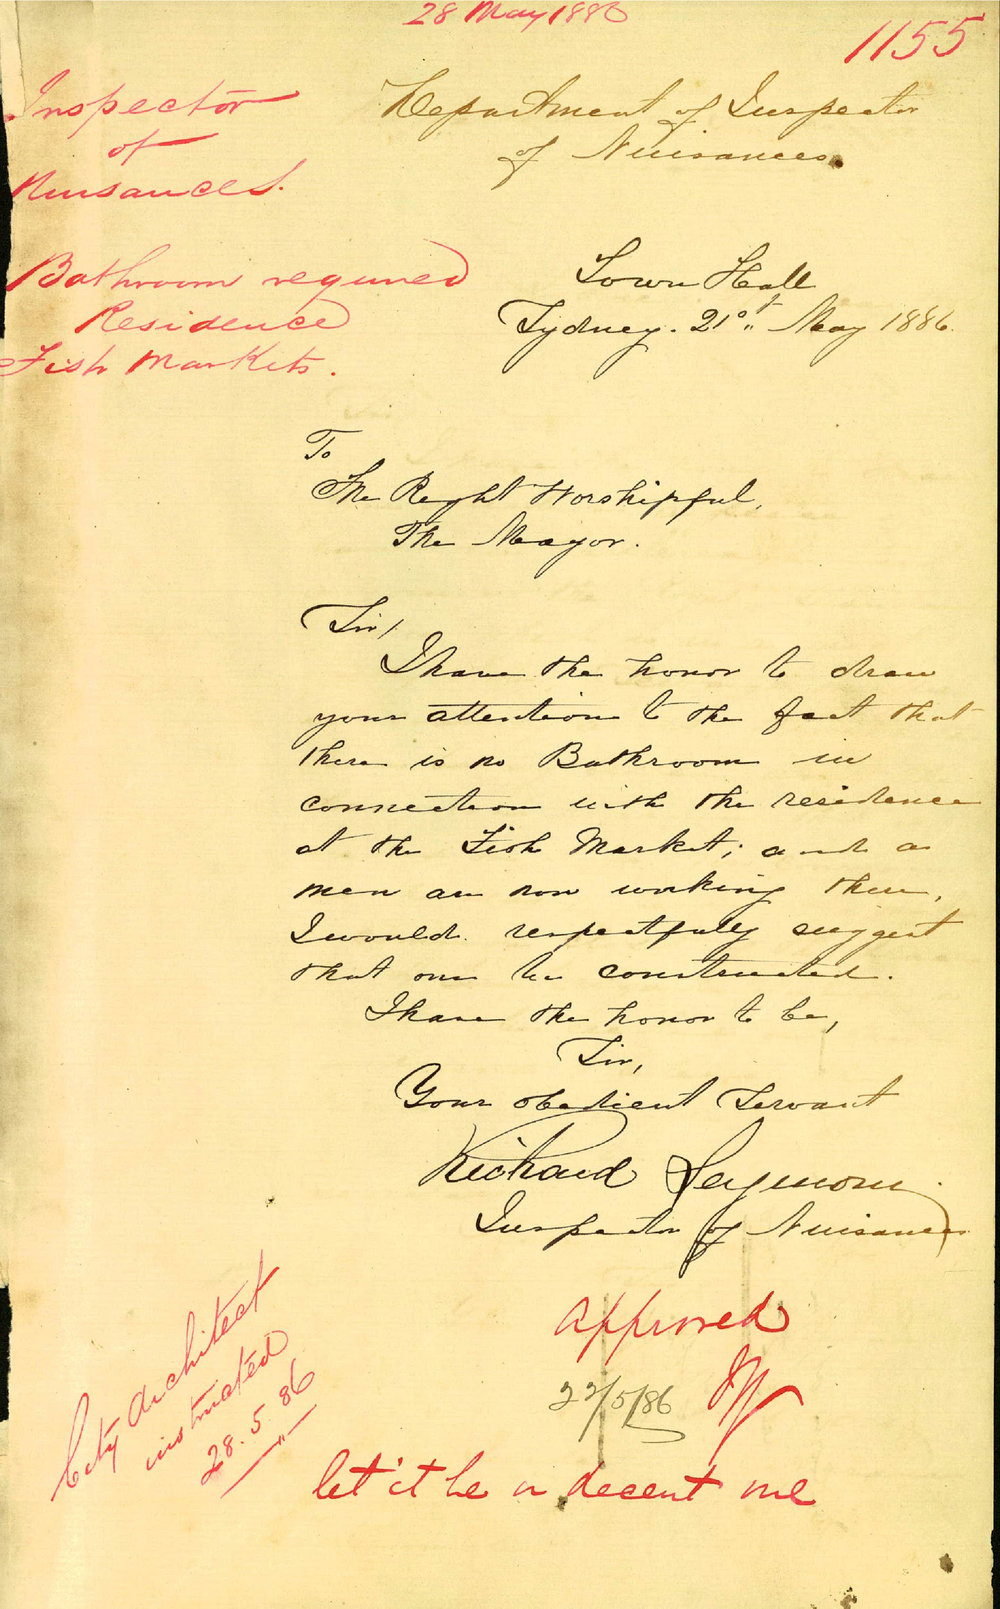 28 May 1886
1155
Inspector
of
Nuisances.
Bathroom required
Residence
Fish Markets.
Department of Inspector
of Nuisances.
Town Hall
Sydney. 21st May 1886.
To
The Right Worshipful,
The Mayor.
Sir/
I have the honor to draw
your attention to the fact that
there is no Bathroom in
connection with the residence
at the Fish Market; and as
men are now working there,
I would respectfully suggest
that one be constructed.
I have the honor to be,
Sir,
Your obedient Servant
Richard Seymour.
Inspector of Nuisances
approved
22/5/86
let it be a decent one
City Architect
instructed
28.5.86